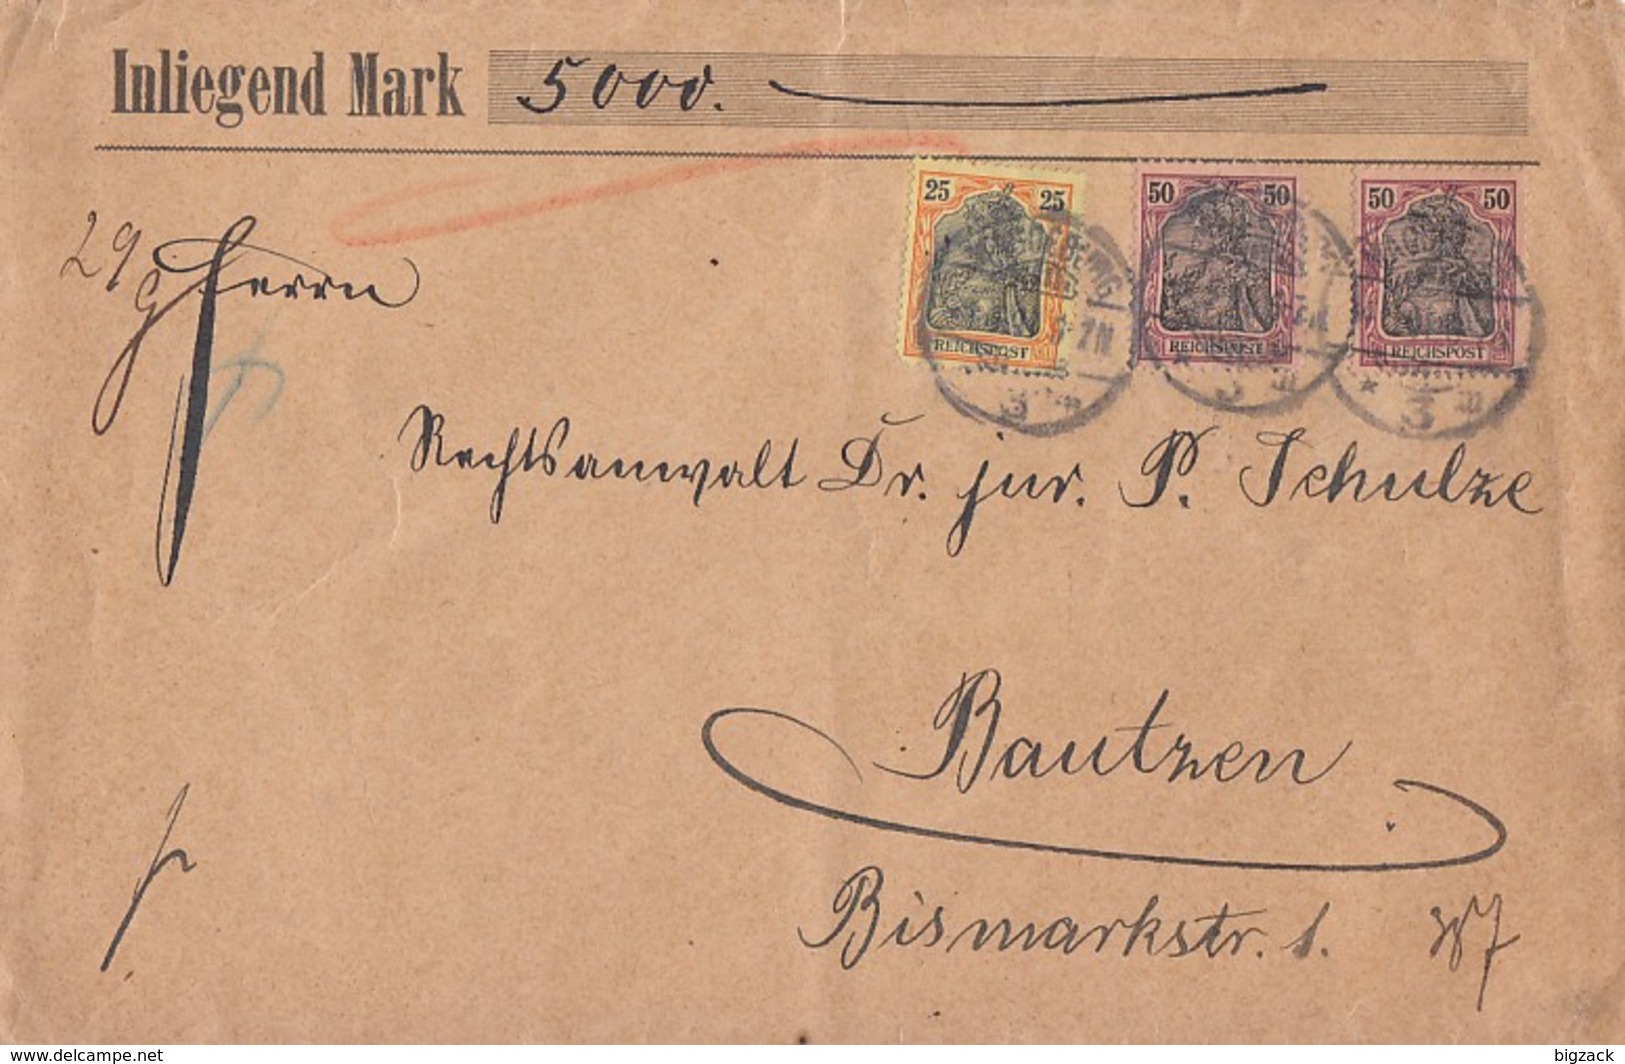 Inliegend Mark 5000.
25 25
REICHSPOST
50 50
REICHSPOST
50 50
REICHSPOST
3
3
3
29 g
Herrn
Rechtsanwalt Dr. jur. P. Schulze
Bautzen
Bismarkstr. 1.
www.delcampe.net
bigzack